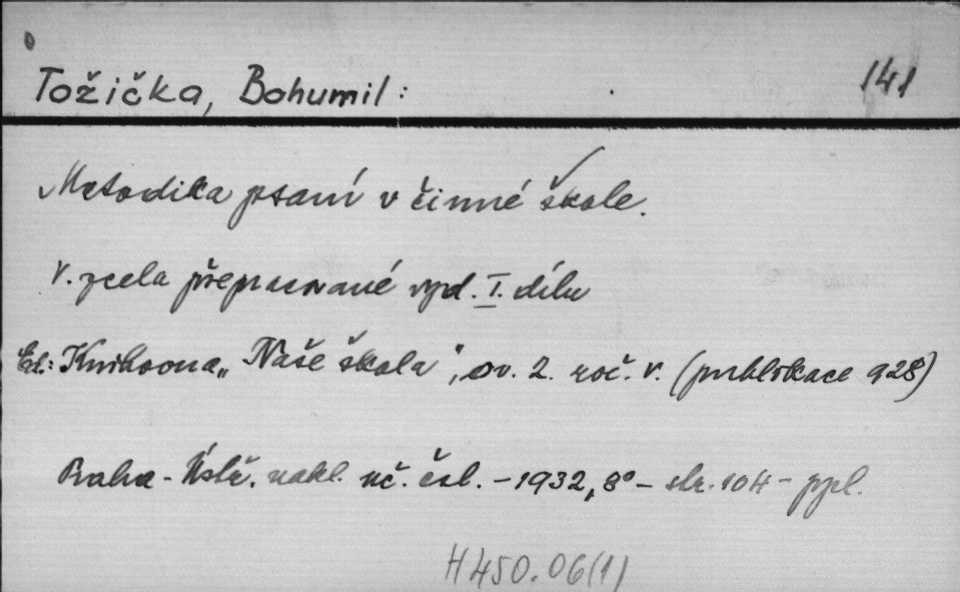 Tožička, Bohumil: 141
Metodika psaní v činné škole.
V. zcela přepracované vyd. I. dílu
Ed: Knihovna „Naše škola", sv. 2. roč. V. (publikace 928)
Praha - Ústř. nakl. uč. čsl. - 1932, 8° - str. 104 - ppl.
H 450.06(1)